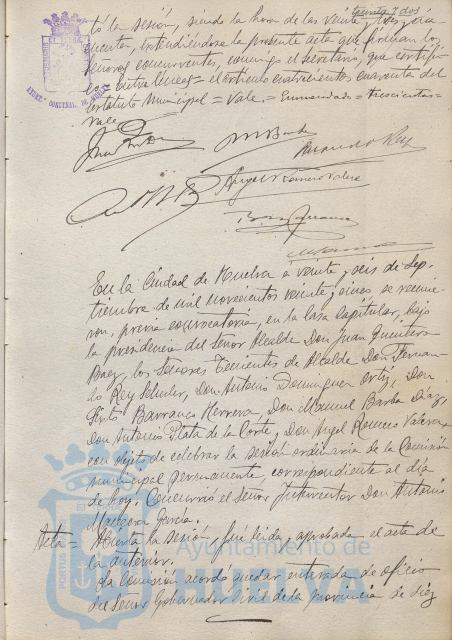 treinta y dos
tó la sesión, siendo la hora de las veinte y tres, cin-
cuenta, extendiéndose la presente acta que firman los
Señores concurrentes, conmigo el secretario, que certifi-
co = Entre líneas = el artículo cuatrocientos cuarenta del
estatuto Municipal = Vale. = Enmendado = trescientas =
Vale
M Barba
Fernando Rey
Angel Romero Valera
En la Ciudad de Huelva a veinte y seis de Sep-
tiembre de mil novecientos veinte y cinco, se reunie-
ron, previa convocatoria, en la Casa Capitular, bajo
la presidencia del Señor Alcalde Don Juan Quintero
Baez, los Señores Tenientes de Alcalde Don Fernan-
do Rey Schuler, Don Antonio Dominguez Ortiz, Don
Sixto Barranco Herrera, Don Manuel Barba Díaz,
Don Antonio Plata de la Corte, y Don Angel Romero Valera,
con objeto de celebrar la sesión ordinaria de la Comisión
municipal permanente, correspondiente al día
de hoy. Concurrió el Señor Interventor Don Antonio
García.
Acta = Abierta la sesión, fué leida y aprobada el acta de
la anterior.
La Comisión acordó quedar enterada de oficio
del Señor Gobernador Civil de la provincia de diez
Ayuntamiento de
HUELVA